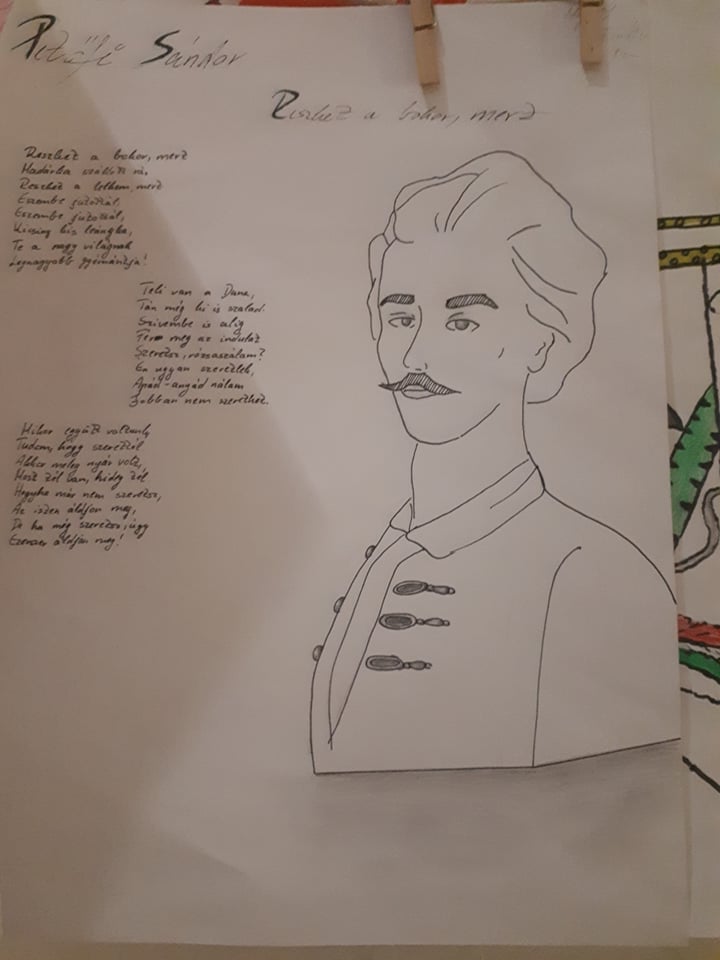 Petőfi Sándor
Reszket a bokor, mert
Reszket a bokor, mert
Madárka szállott rá,
Reszket a lelkem, mert
Eszembe jutottál,
Eszembe jutottál,
Kicsiny kis leányka,
Te a nagy világnak
Legnagyobb gyémántja!
Teli van a Duna,
Tán még ki is szalad.
Szivembe is alig
Fér meg az indulat
Szeretsz, rózsaszálam?
Én ugyan szeretlek,
Apád-anyád nálam
Jobban nem szerethet.
Mikor együtt voltunk,
Tudom, hogy szerettél
Akkor meleg nyár volt,
Most tél van, hideg tél
Hogyha már nem szeretsz,
Az isten áldjon meg,
De ha még szeretsz, úgy
Ezerszer áldjon meg!